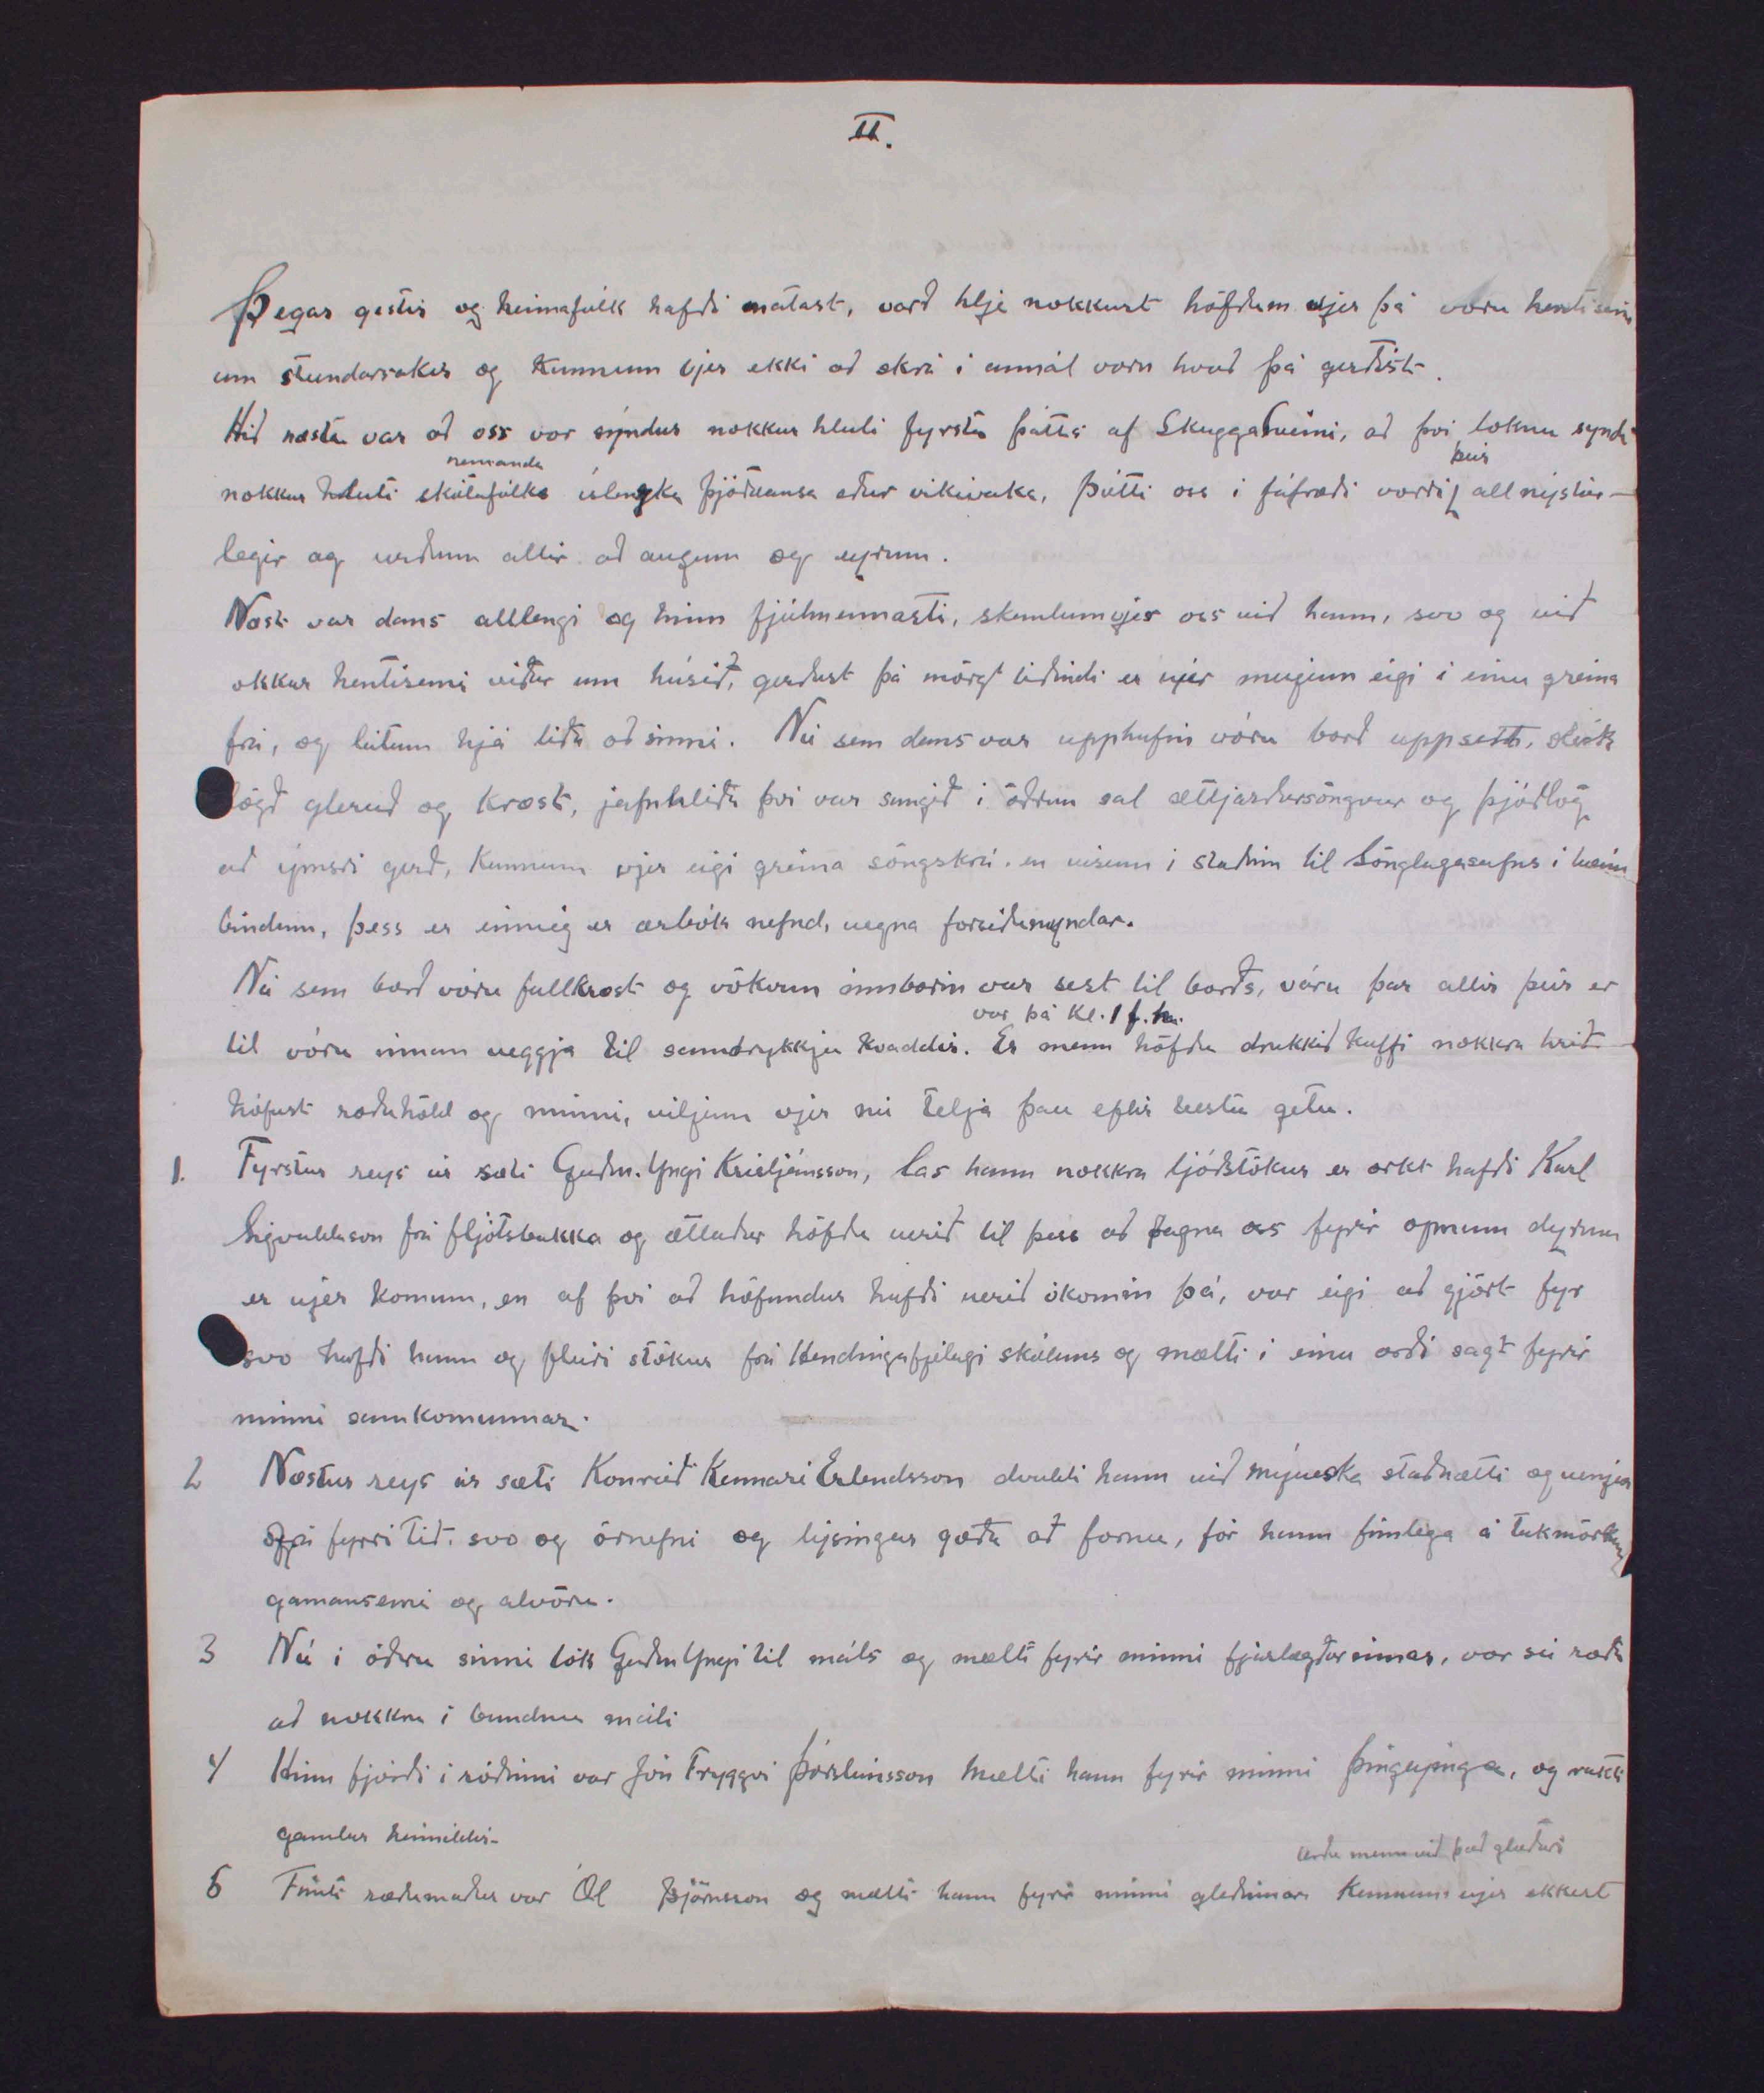 II.
Þegar gestir og heimafólk hafði matast, varð hlje nokkurt höfðum vjer þá voru hentisemi
um stundarsakir og kunnum vjer ekki að skrá í annál vorn hvað þá gerðist.
Hið næsta var að oss var sýndur nokkur hluti fyrsta þáttar af Skuggasveini, að því loknu syndi
nemanda þeir
nokkur hluti skólafólks íslenska þjóðdansa eður vikivaka, þótti oss í fáfræði vorri allnýstár-
legir og urðum allir að augum og eyrum.
Næst var dans alllengi og hinn fjölmennasti, skemtum vjer oss við hann, svo og við
okkar hentisemi viðar um húsið, gerðust þá mörg tíðindi er vjer megum eigi í einu greina
frá, og látum hjá líða að sinni. Nú sem dans var upphafin vóru borð uppsett, dúk
lögð gleruð og kræst, jafnhliða því var sungið í öðrum sal ættjarðarsöngvar og þjóðlög
að ýmsri gerð, kunnum vjer eigi greina söngskrá en vísum í staðinn til Sönglagasafns í heim
bindum, þess er einnig er árbók nefnd, vegna forsíðumyndar.
Nú sem borð vóru fullkræst og vökvun innborin var sest til borðs, vóru þar allir þeir er
var þá Kl. 1 f.h.
til vóru innan veggja til samdrykkju kvaddir. Er menn höfðu drukkið kaffi nokkra hríð
hófust ræðuhöld og minni, viljum vjer nú telja þau eftir bestu getu.
1. Fyrstur reys úr sæti Guðm. Yngi Kristjánsson, las hann nokkra ljóðstökur er orkt hafði Karl
Sigvaldason frá fljótsbakka og ætlaðar höfðu verið til þess að fagna oss fyrir opnum dyrum
er vjer komum, en af því að höfundur hafði verið ókomin þá, var eigi að gjört fyr
svo hafði hann og fleiri stökur frá Hendingafjelagi skólans og mælti í einu orði sagt fyrir
minni samkomunnar.
2 Næstur reys úr sæti Konráð Kennari Erlendsson dvaldi hann við mývneska staðhætti og venjur
frá fyrri tíð. svo og örnefni og lýsingar gæða að fornu, fór hann fimlega á takmörkum
gamansemi og alvöru.
3 Nú í öðru sinni tók Guðm Yngi til máls og mælti fyrir minni fjarlægðarinnar, var sú ræða
að nokkru í bundnu máli
4 Hinn fjórði í röðinni var Jón Tryggvi Þorsteinsson Mælti hann fyrir minni Þingeyinga, og rakti
gamlar heimildir-
Urðu menn við það glaðari
5 Fimti ræðumaður var Ól Björnsson og mælti hann fyrir minni gleðinnar Kunnum vjer ekkert